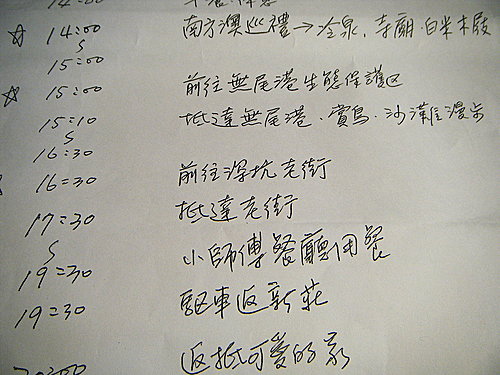 ☆ 14:00 南方澳巡禮→冷泉、寺廟、白米木屐
S
15:00
☆ 15:00 前往無尾港生態保護区
15:10 抵達無尾港、賞鳥、沙灘漫步
S
16:30
16:30 前往深坑老街
17:30 抵達老街
S 小師傅餐廳用餐
19:30
19:30 驅車返新莊
返抵可愛的家